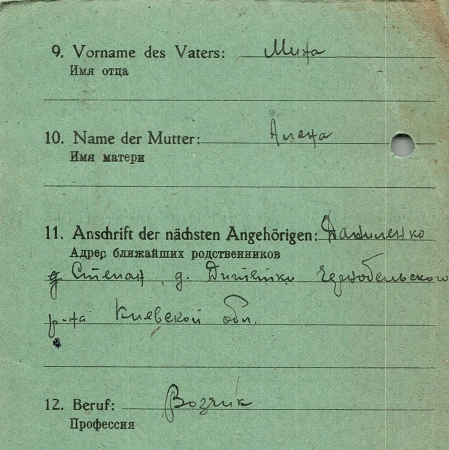 9. Vorname des Vaters: Миха
Имя отца
10. Name der Mutter: Алена
Имя матери
11. Anschrift der nächsten Angehörigen: Даниленко
Адрес ближайших родственников
Степан, д. Дитятки Чернобельского
р-на Киевской обл.
12. Beruf: Возчик
Профессия